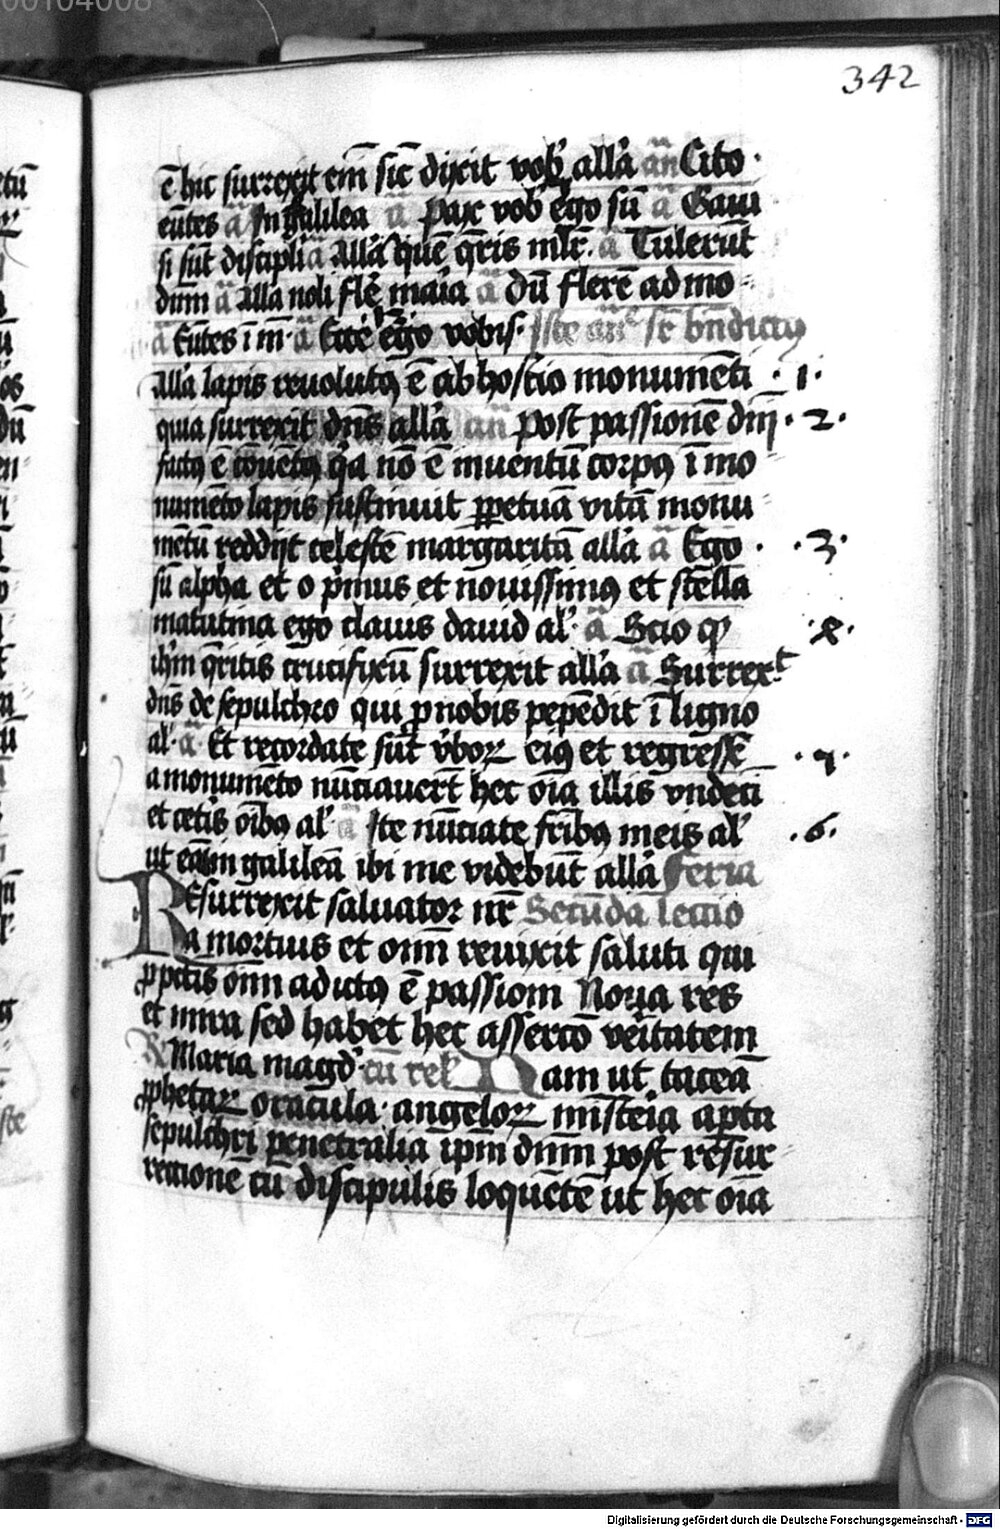 342
ē hic surrexit em̄ sic̄ dixit vob̓ all̓a an̄ Cito ·
eūtes ā In galilea ā pax vob̓ ego sū ā Gaui
si sūt discipli ā All̓a quē q̄ris ml̄r · ā Tulerūt
dnm̄ ā all̓a noli flē maīa ā dū flerē ad mo
ā Eūtes ī m̄ · ā Ecce ego vobis · Iste an̄e sr̄ bn̄dictꝰ
all̓a lapis reuolutꝰ ē ab hostio monumēti · 1 ·
quia surrexit dn̄s all̓a an̄ post passionē dn̄j · 2 ·
factꝰ ē cōuētꝰ q̓a nō ē inuentū corpꝰ ī mo
numēto lapis sustinuit ꝑpetuā vitā monu
mētū reddijt celestē margaritā all̓a ā Ego · · 3 ·
sū alpha et o p̓mus et nouissimꝰ et stella
matutina ego clauis dauid al̓ · ā Scio ꝙ · 4 ·
ih̄m q̄ritis crucifixū surrexit all̓a ā Surrexᵗ
dn̄s de sepulchro qui ꝓ nobis pepēdit ī ligno
al̓ · ā Et recordate sūt v̓boꝝ eiꝰ et regresse · 5 ·
a monumēto nūciauer̄t hec oīa illis vndeci
et cet̓is oībꝰ al̓ ā Ite nūciate fr̄ibꝰ meis al̓ · 6 ·
ut eāt in galileā ibi me videbūt all̓a Feria
Resurrexit saluator nr̄ Secūda lectio
a mortuis et om̄ reuixit saluti qui
ꝑpetis om̄i adictꝰ ē passiom̄ Noua res
et mira sed habet hec assercō ver̄itatem
℟ Maria magd̓ · cū relꝭ Nam ut taceā
ꝓphetaꝝ oracula · angeloꝝ mīsteīa aꝑta
sepulchri penetralia ip̄m dn̄m post resur
rectionē cū discipulis loquētē ut hec oīa
Digitalisierung gefördert durch die Deutsche Forschungsgemeinschaft - DFG